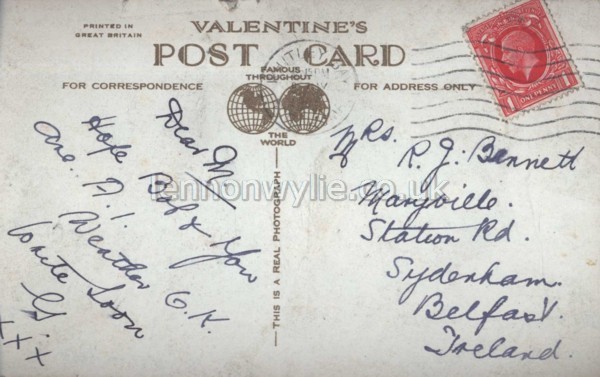 PRINTED IN
GREAT BRITAIN
VALENTINE'S
POST CARD
FAMOUS
THROUGHOUT
THE
WORLD
FOR CORRESPONDENCE
FOR ADDRESS ONLY
THIS IS A REAL PHOTOGRAPH
1 ONE PENNY 1
Dear M
Hope Boys You
are A.1.
Weather O.K.
Write Soon
G.
xxx
Mrs. R. J. Bennett
Maryville.
Station Rd.
Sydenham.
Belfast.
Ireland.
lennonwylie.co.uk